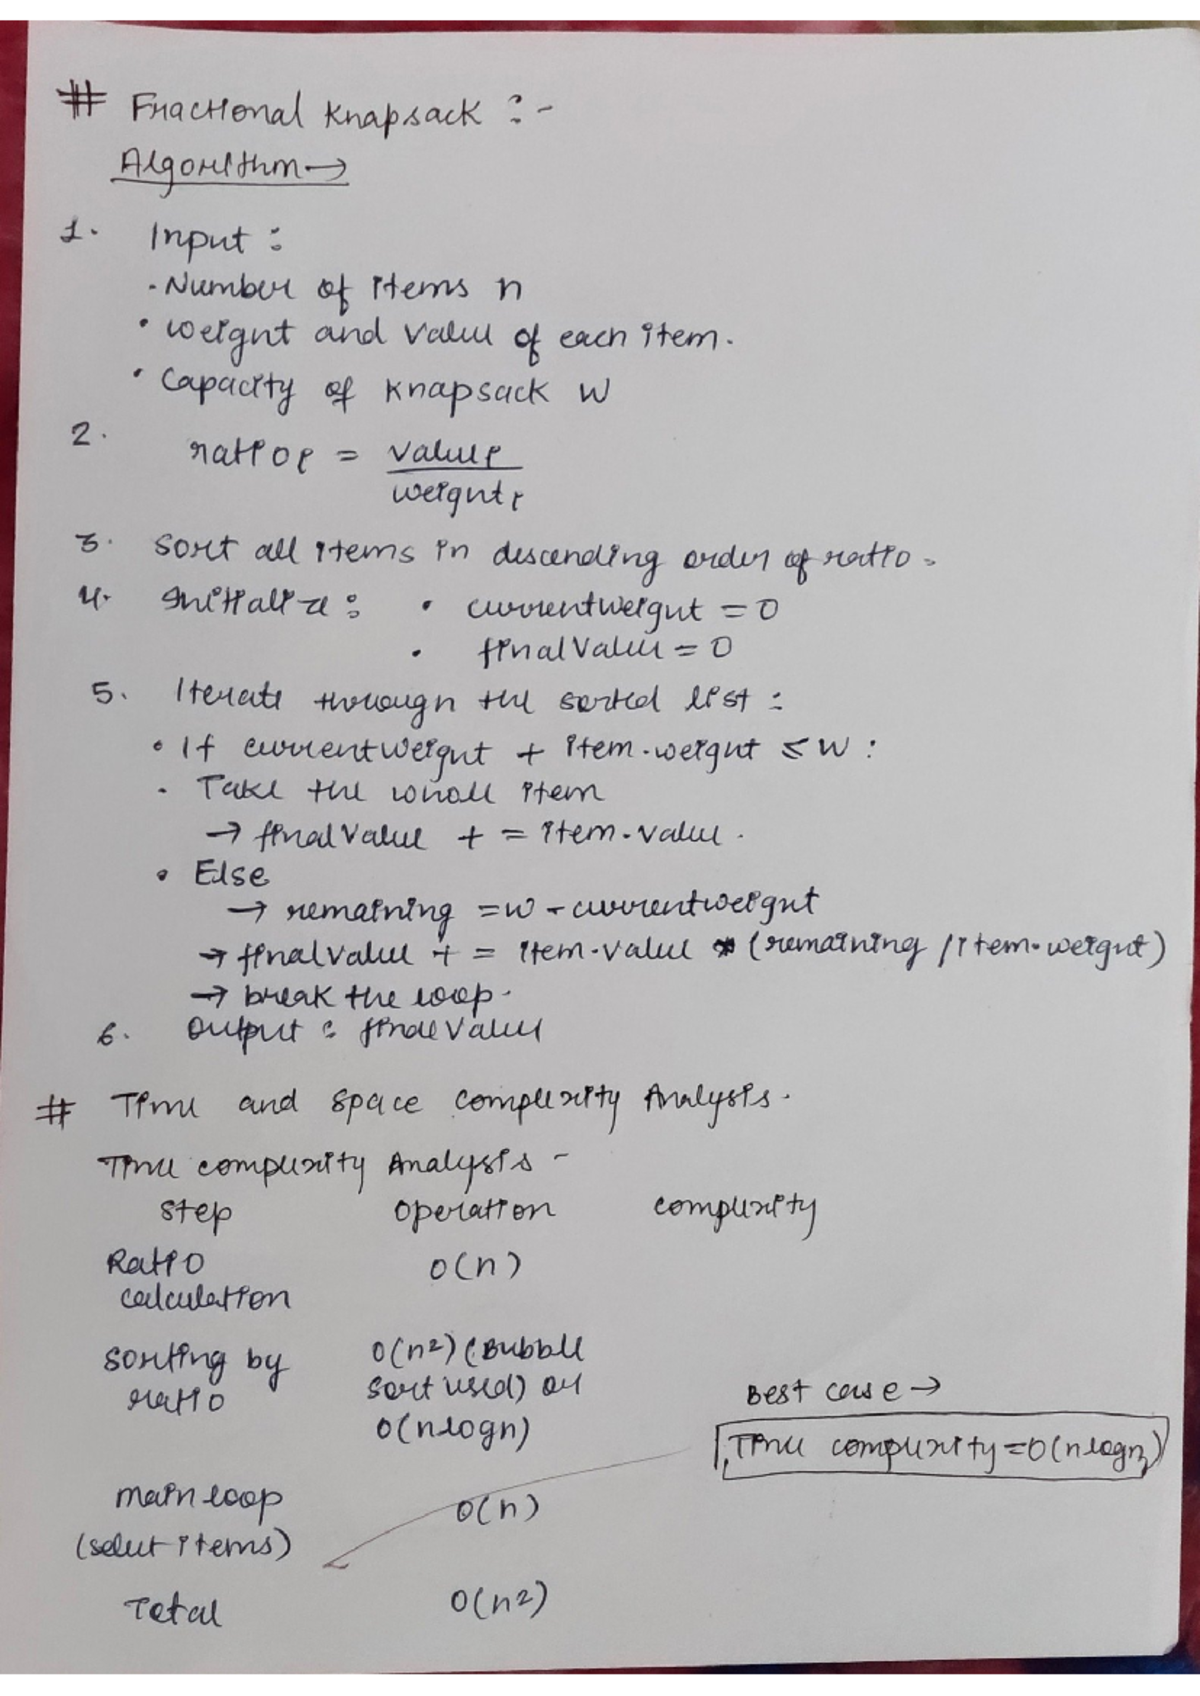 # Fractional Knapsack :-
Algorithm →
1. Input :
· Number of items n
• weight and value of each item.
• Capacity of knapsack W
2. ratioi = valuei / weighti
3. Sort all items in descending order of ratio.
4. Initialize : • currentweight = 0
• finalValue = 0
5. Iterate through the sorted list :
• If currentweight + item.weight ≤ W :
· Take the whole item
→ finalValue += item.value.
• Else
→ remaining = W - currentweight
→ finalvalue += item.value * (remaining / item.weight)
→ break the loop.
6. Output : finalValue
# Time and Space Complexity Analysis.
Time complexity Analysis -
Step Operation complexity
Ratio O(n)
calculation
Sorting by O(n²) (Bubble
ratio Sort used) or
O(nlogn)
Best case →
Time complexity = O(nlogn)
main loop O(n)
(select items)
Total O(n²)